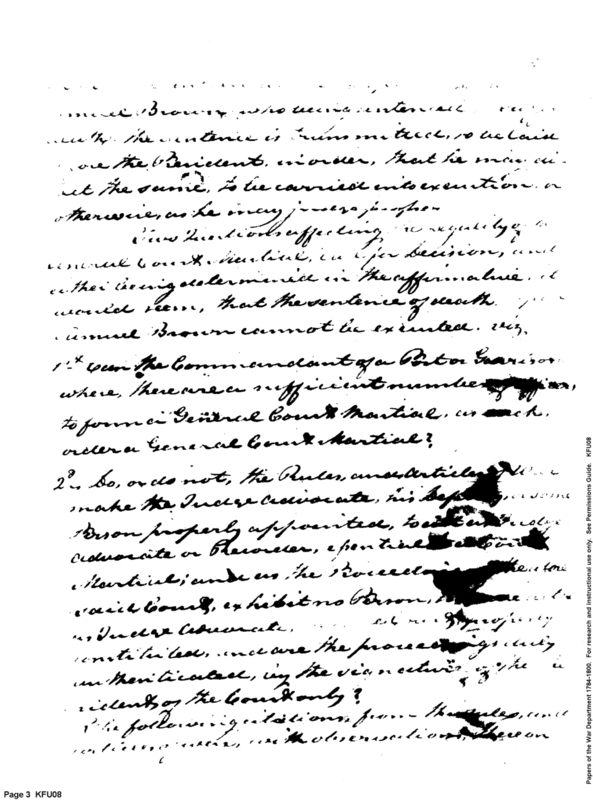 Samuel Brown, who being sentenced
death. the sentence is transmitted, to be laid
the President, in order, that he may di-
the same, to be carried into execution. or
otherwise, as he may judge proper
Two Questions affecting the regularity of
General Court Martial, for Decision, and
either being determined in the affirmative. it
would seem, that the sentence of death
Samuel Brown cannot be executed. viz.
1st can the Commandant of a Post or Garrison
where, there are a sufficient number
to form a General Court Martial, as such,
order a General Court Martial?
2d Do, or do not, the Rules, and Articles
make the Judge advocate, his
Person properly appointed, to Judge
advocate or Recorder, essential Court
Martial; and as the the
said Court, exhibit no Person,
as Judge advocate, properly
constituted, and are the proceedings duly
authenticated, by the signature of the
of the Court only?
The following citations, from the rules, and
with observations, thereon
Page 3 KFU08
Papers of the War Department 1784-1800. For research and instructional use only. See Permissions Guide. KFU08